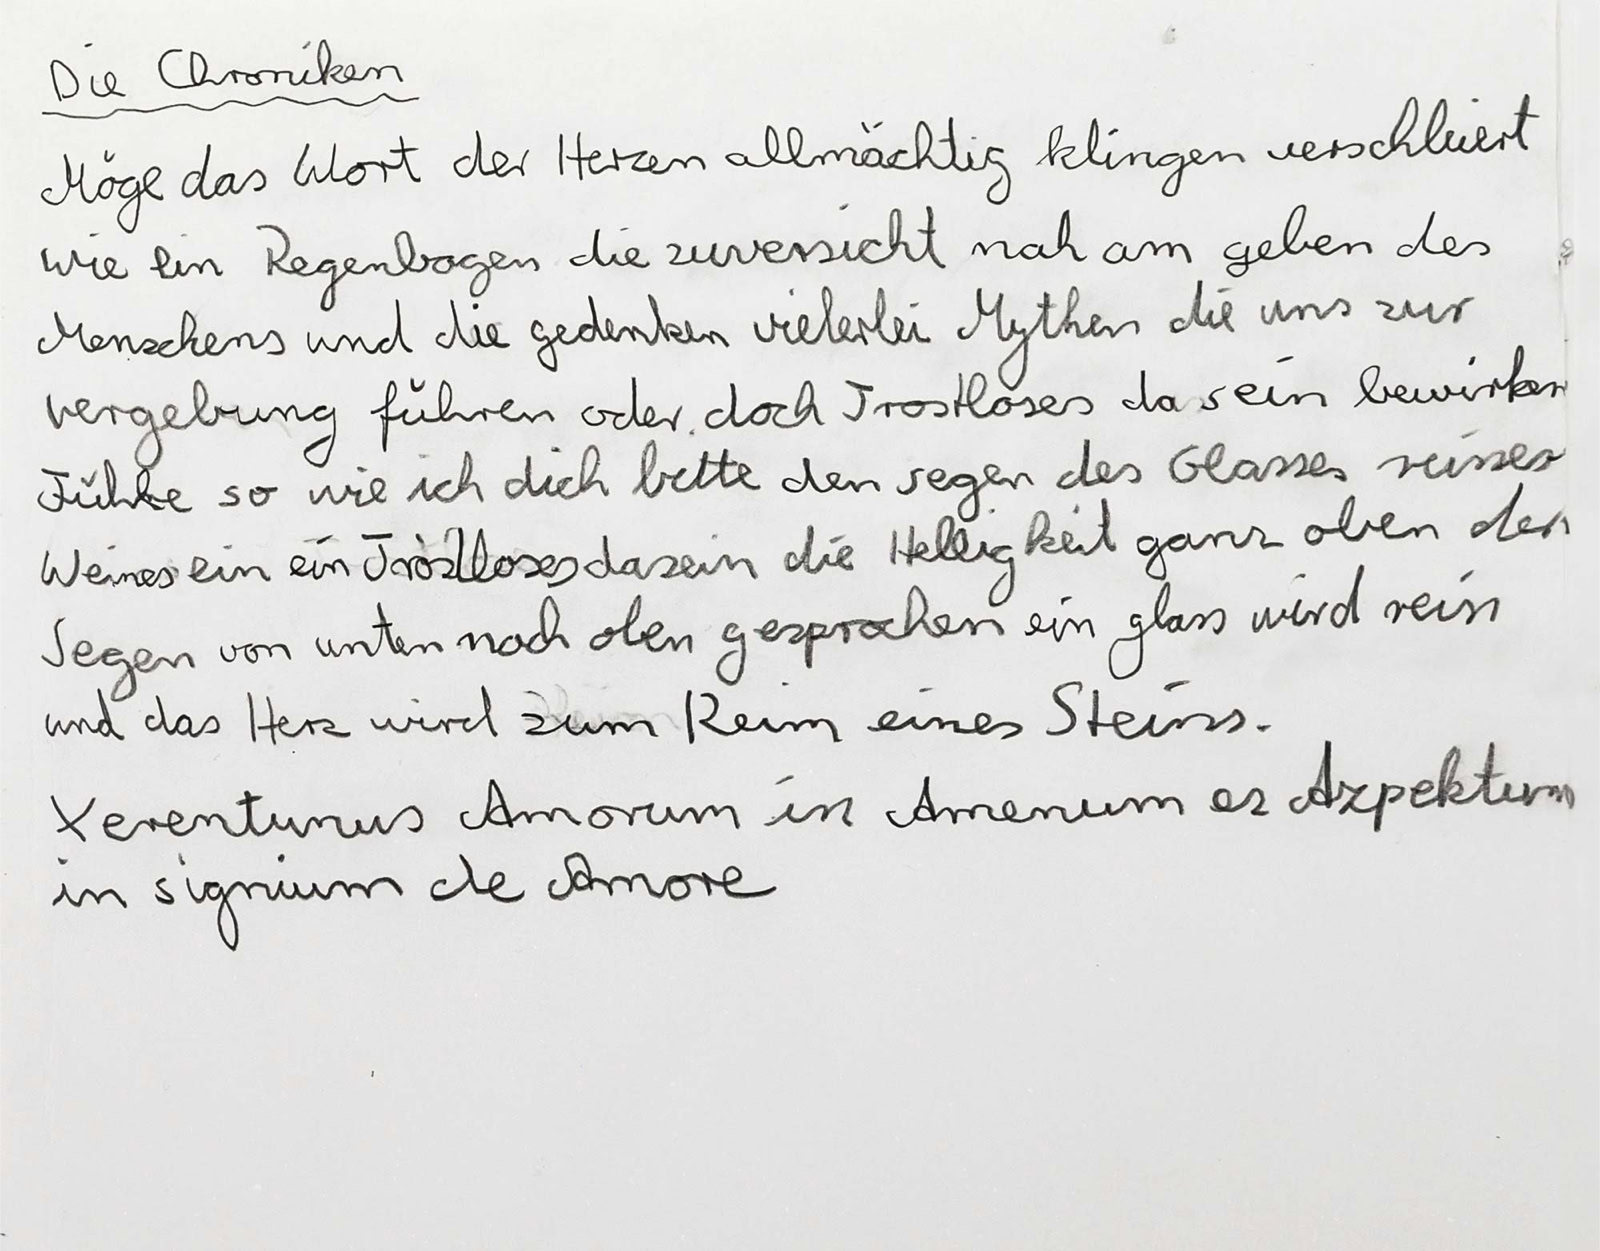 Die Chroniken
Möge das Wort der Herzen allmächtig klingen verschleiert
wie ein Regenbogen die zuversicht nah am geben des
Menschens und die gedenken vielerlei Mythen die uns zur
vergebung führen oder doch Trostloses da sein bewirken
Fühle so wie ich dich bitte den segen des Glasses reines
Weines ein ein Trostloses dasein die Helligkeit ganz oben den
Segen von unten nach oben gesprochen ein glass wird rein
und das Herz wird zum Reim eines Steins.
Xerentunus Amorum in Amenum es Azpektum
in signium de Amore